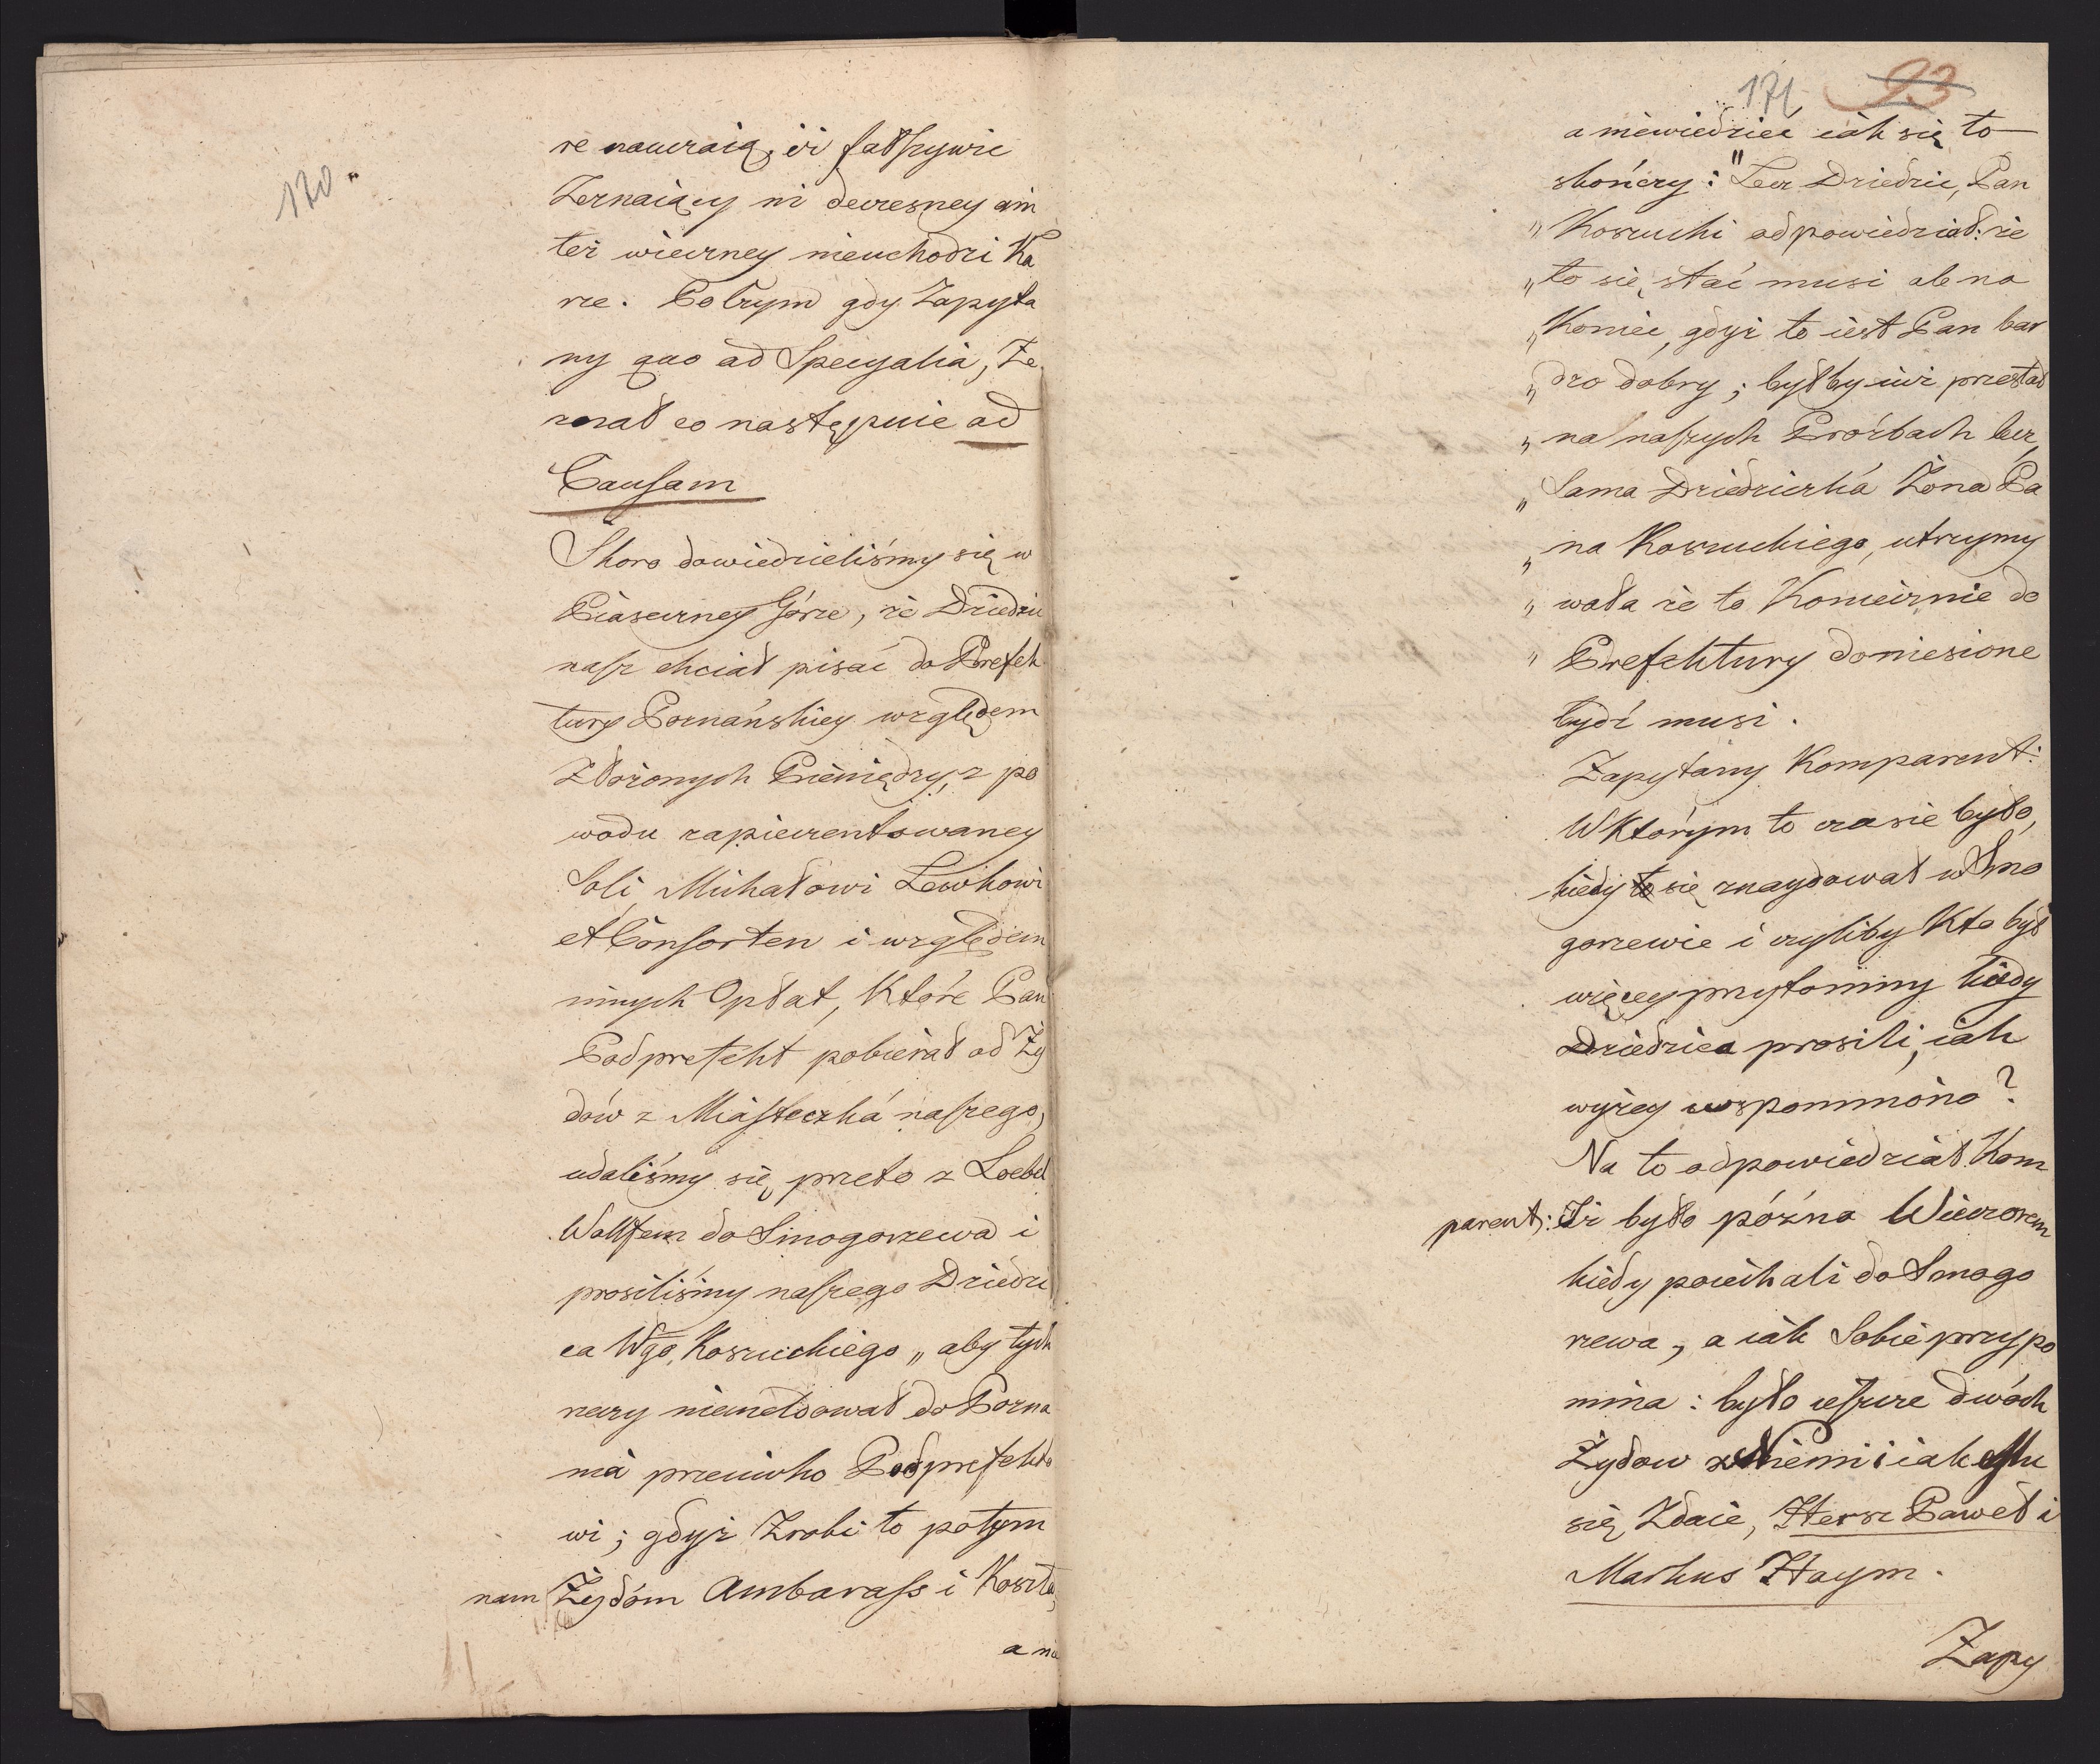 170.
re nauczaią, iż fałszywie
Zeznaiący ni doczesney ani
też wieczney nieuchodzi Ka
rze. Poczym gdy Zapyta
ny quo ad Specyalia, Ze
znał co następuie ad
Causam
Skoro dowiedzieliśmy się w
Piaseczney Górze, że Dziedzic
nasz chciał pisać do Prefek
tury Poznańskiey względem
Złożonych Pieniędzy, z po
wodu zapieczentowaney
Soli Michałowi Lewkowi
et Consorten i względem
innych Opłat, Które Pan
Podprefekt pobierał od Ży
dów z Miasteczka naszego,
udaliśmy się, przeto z Loebel
Wollfem do Smogorzewa i
prosiliśmy naszego Dziedzi
ca Wgo Koszuckiego „ aby tych
rzeczy niemeldował do Pozna
nia przeciwko Podprefekto
wi; gdyż Zrobi to potym
nam Żydóm Ambarass i Koszta,
a nie
171 93
a niewiedzieć iak się to
skończy: " Lecz Dziedzic, Pan
„ Koszucki odpowiedział: że
„ to się stać musi ale na
„ Koniec, gdyż to iest Pan bar
„ dzo dobry; byłby iuż przestał
„ na naszych Prośbach lecz,
„ Sama Dziedziczka Żona Pa
„ na Koszuckiego, utrzymy
„ wała że to Koniecznie do
„ Prefektury doniesione
bydź musi.
Zapytany Komparent:
W Którym to czasie było,
kiedy się znaydował w Smo
gorzewie i czyliby Kto był
więcey przytomny kiedy
Dziedzica prosili, iak
wyżey wspomniono?
Na to odpowiedział Kom
parent: Iż było późno Wieczorem
kiedy poiechali do Smogo
rzewa, a iak Sobie przypo
mina: było ieszcze dwóch
Żydow z Niemi i iak Mu
się Zdaie, Hersz Paweł i
Markus Haym.
Zapy